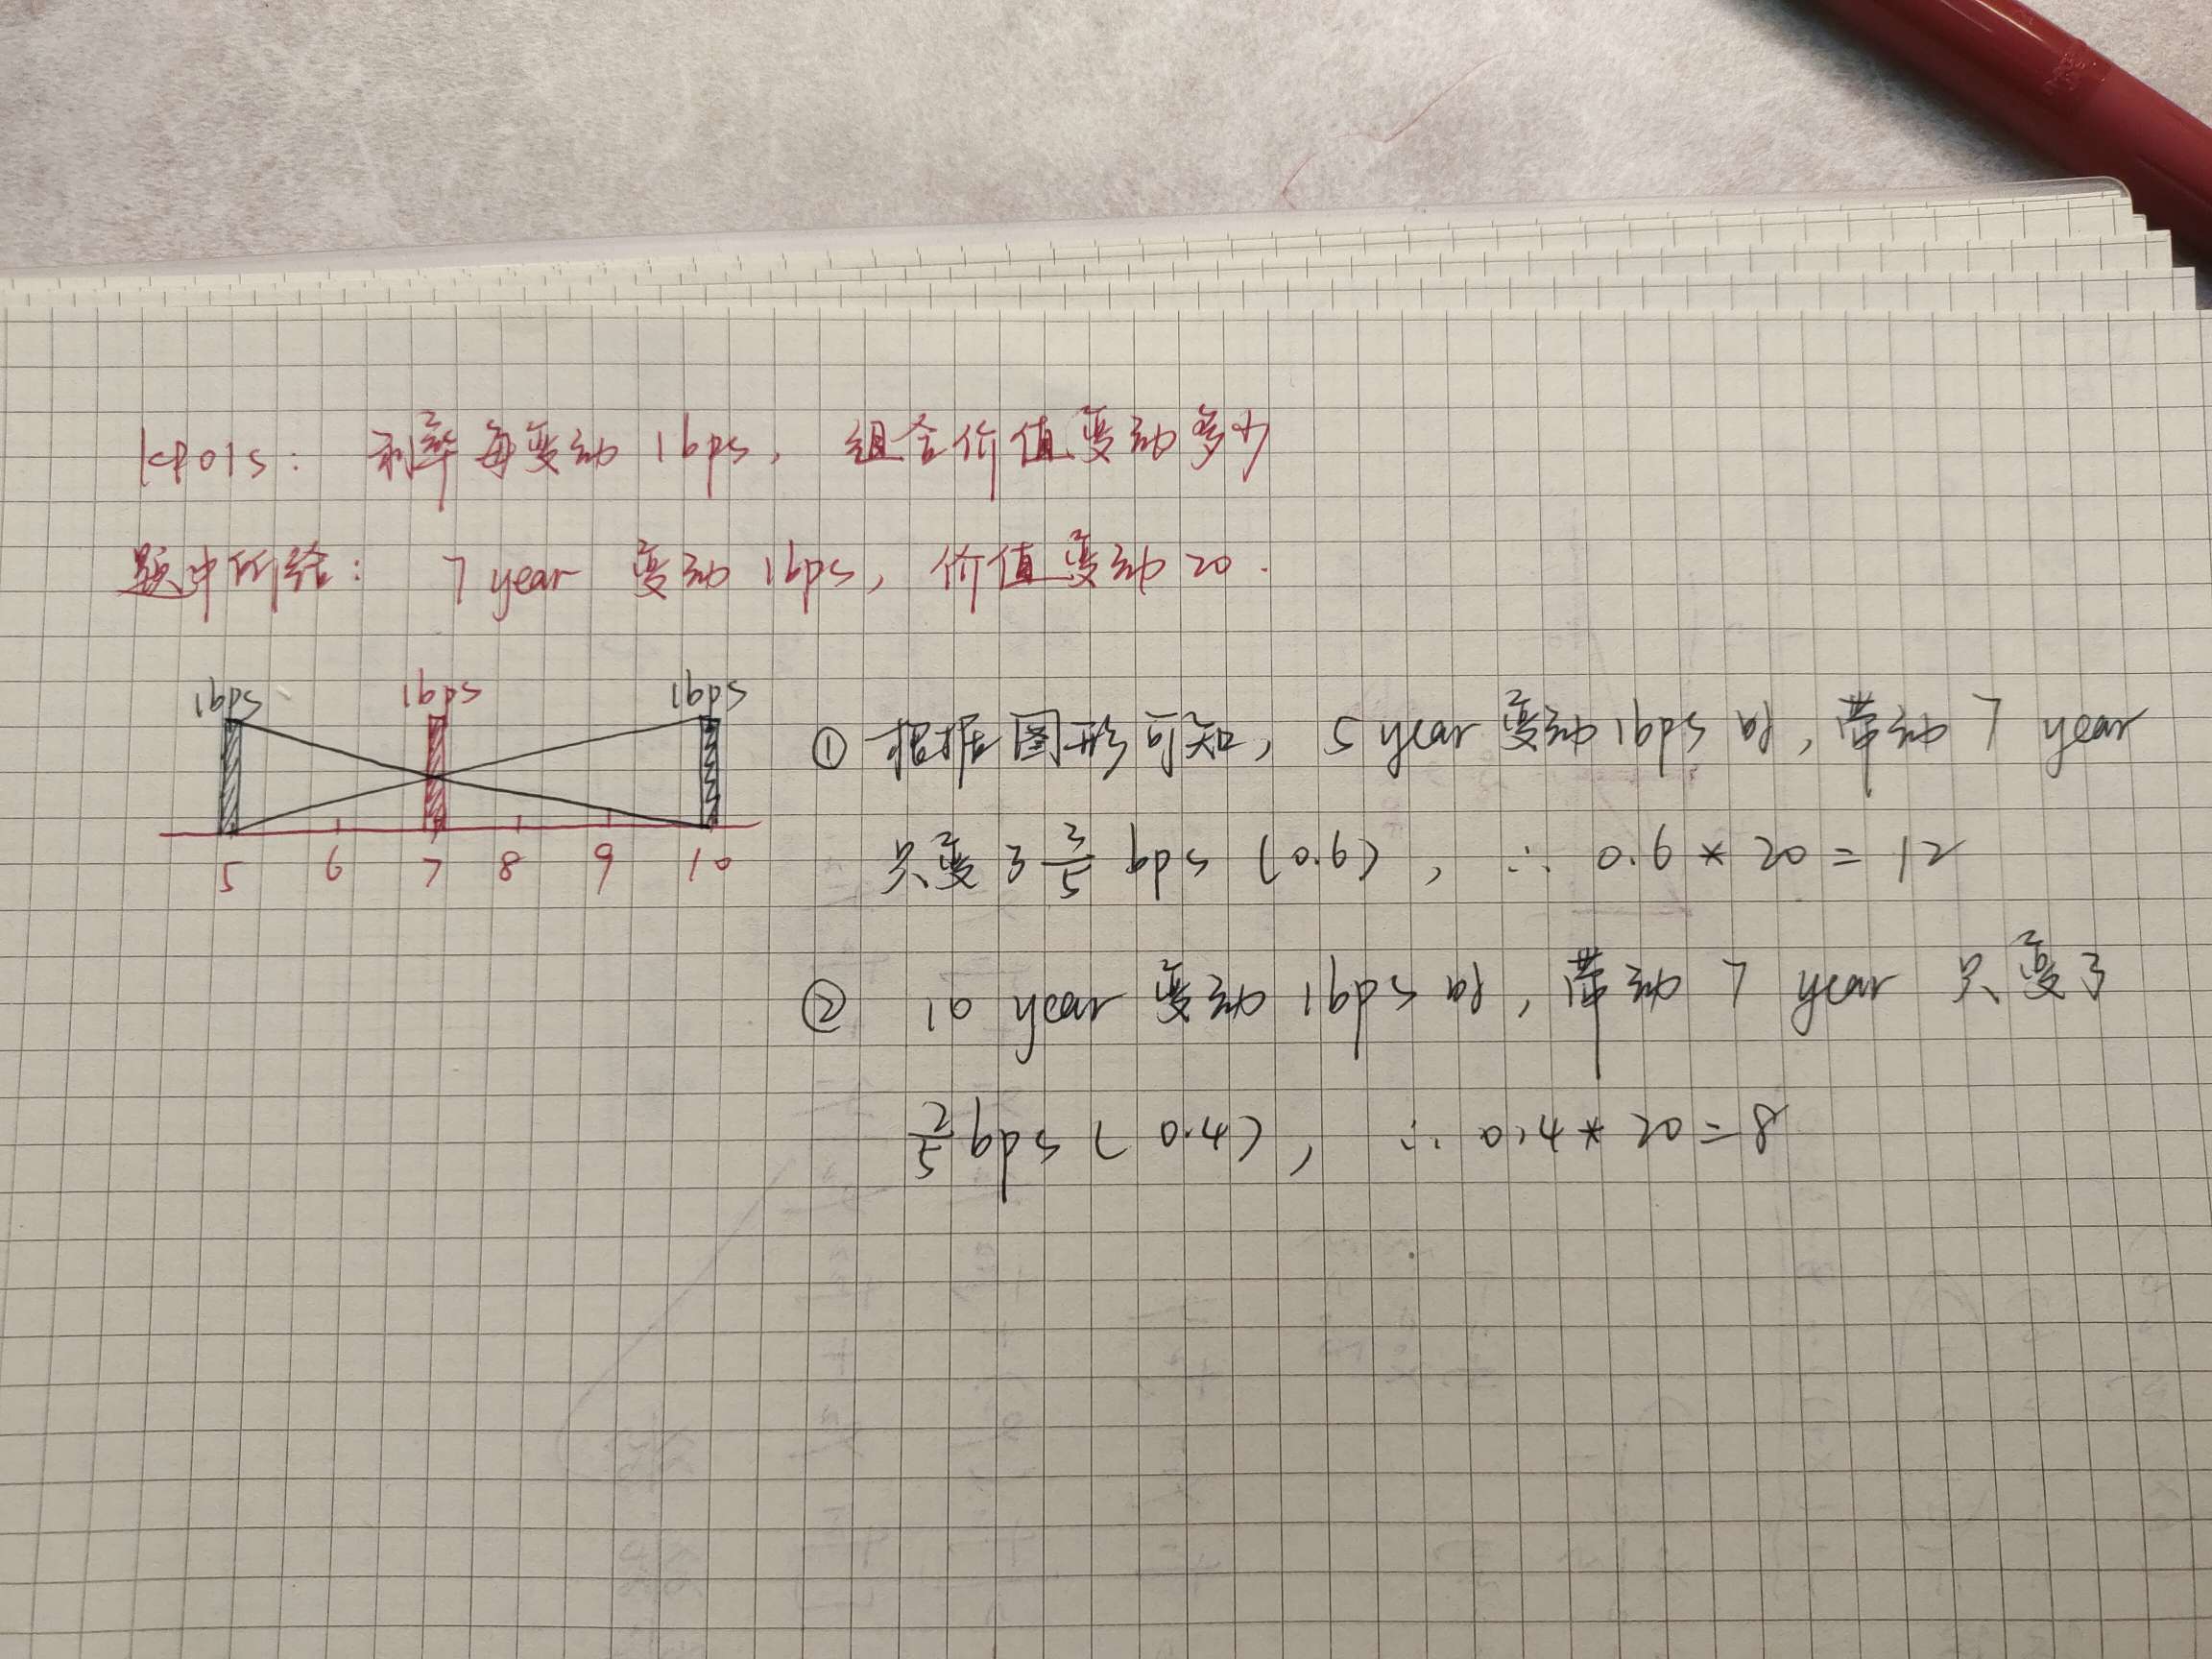 KR01s: 利率每变动 1bps, 组合价值变动多少
题中所给: 7 year 变动 1bps, 价值变动 20.
1bps 1bps 1bps
5 6 7 8 9 10
① 根据图形可知, 5 year 变动 1bps 时, 带动 7 year
只变了 3/5 bps (0.6), ∴ 0.6 * 20 = 12
② 10 year 变动 1bps 时, 带动 7 year 只变了
2/5 bps (0.4), ∴ 0.4 * 20 = 8